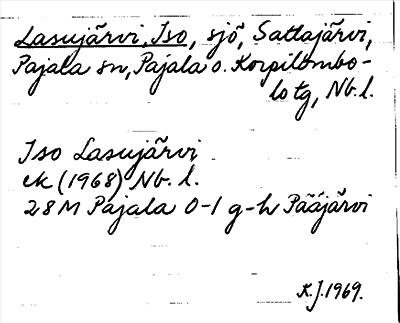 Lasujärvi, Iso, sjö, Sattajärvi,
Pajala sn, Pajala o. Korpilombo-
lo tg, Nb. l.
Iso Lasujärvi
ek (1968) Nb. l.
28M Pajala 0-1 g-h Pääjärvi
K.J. 1969.